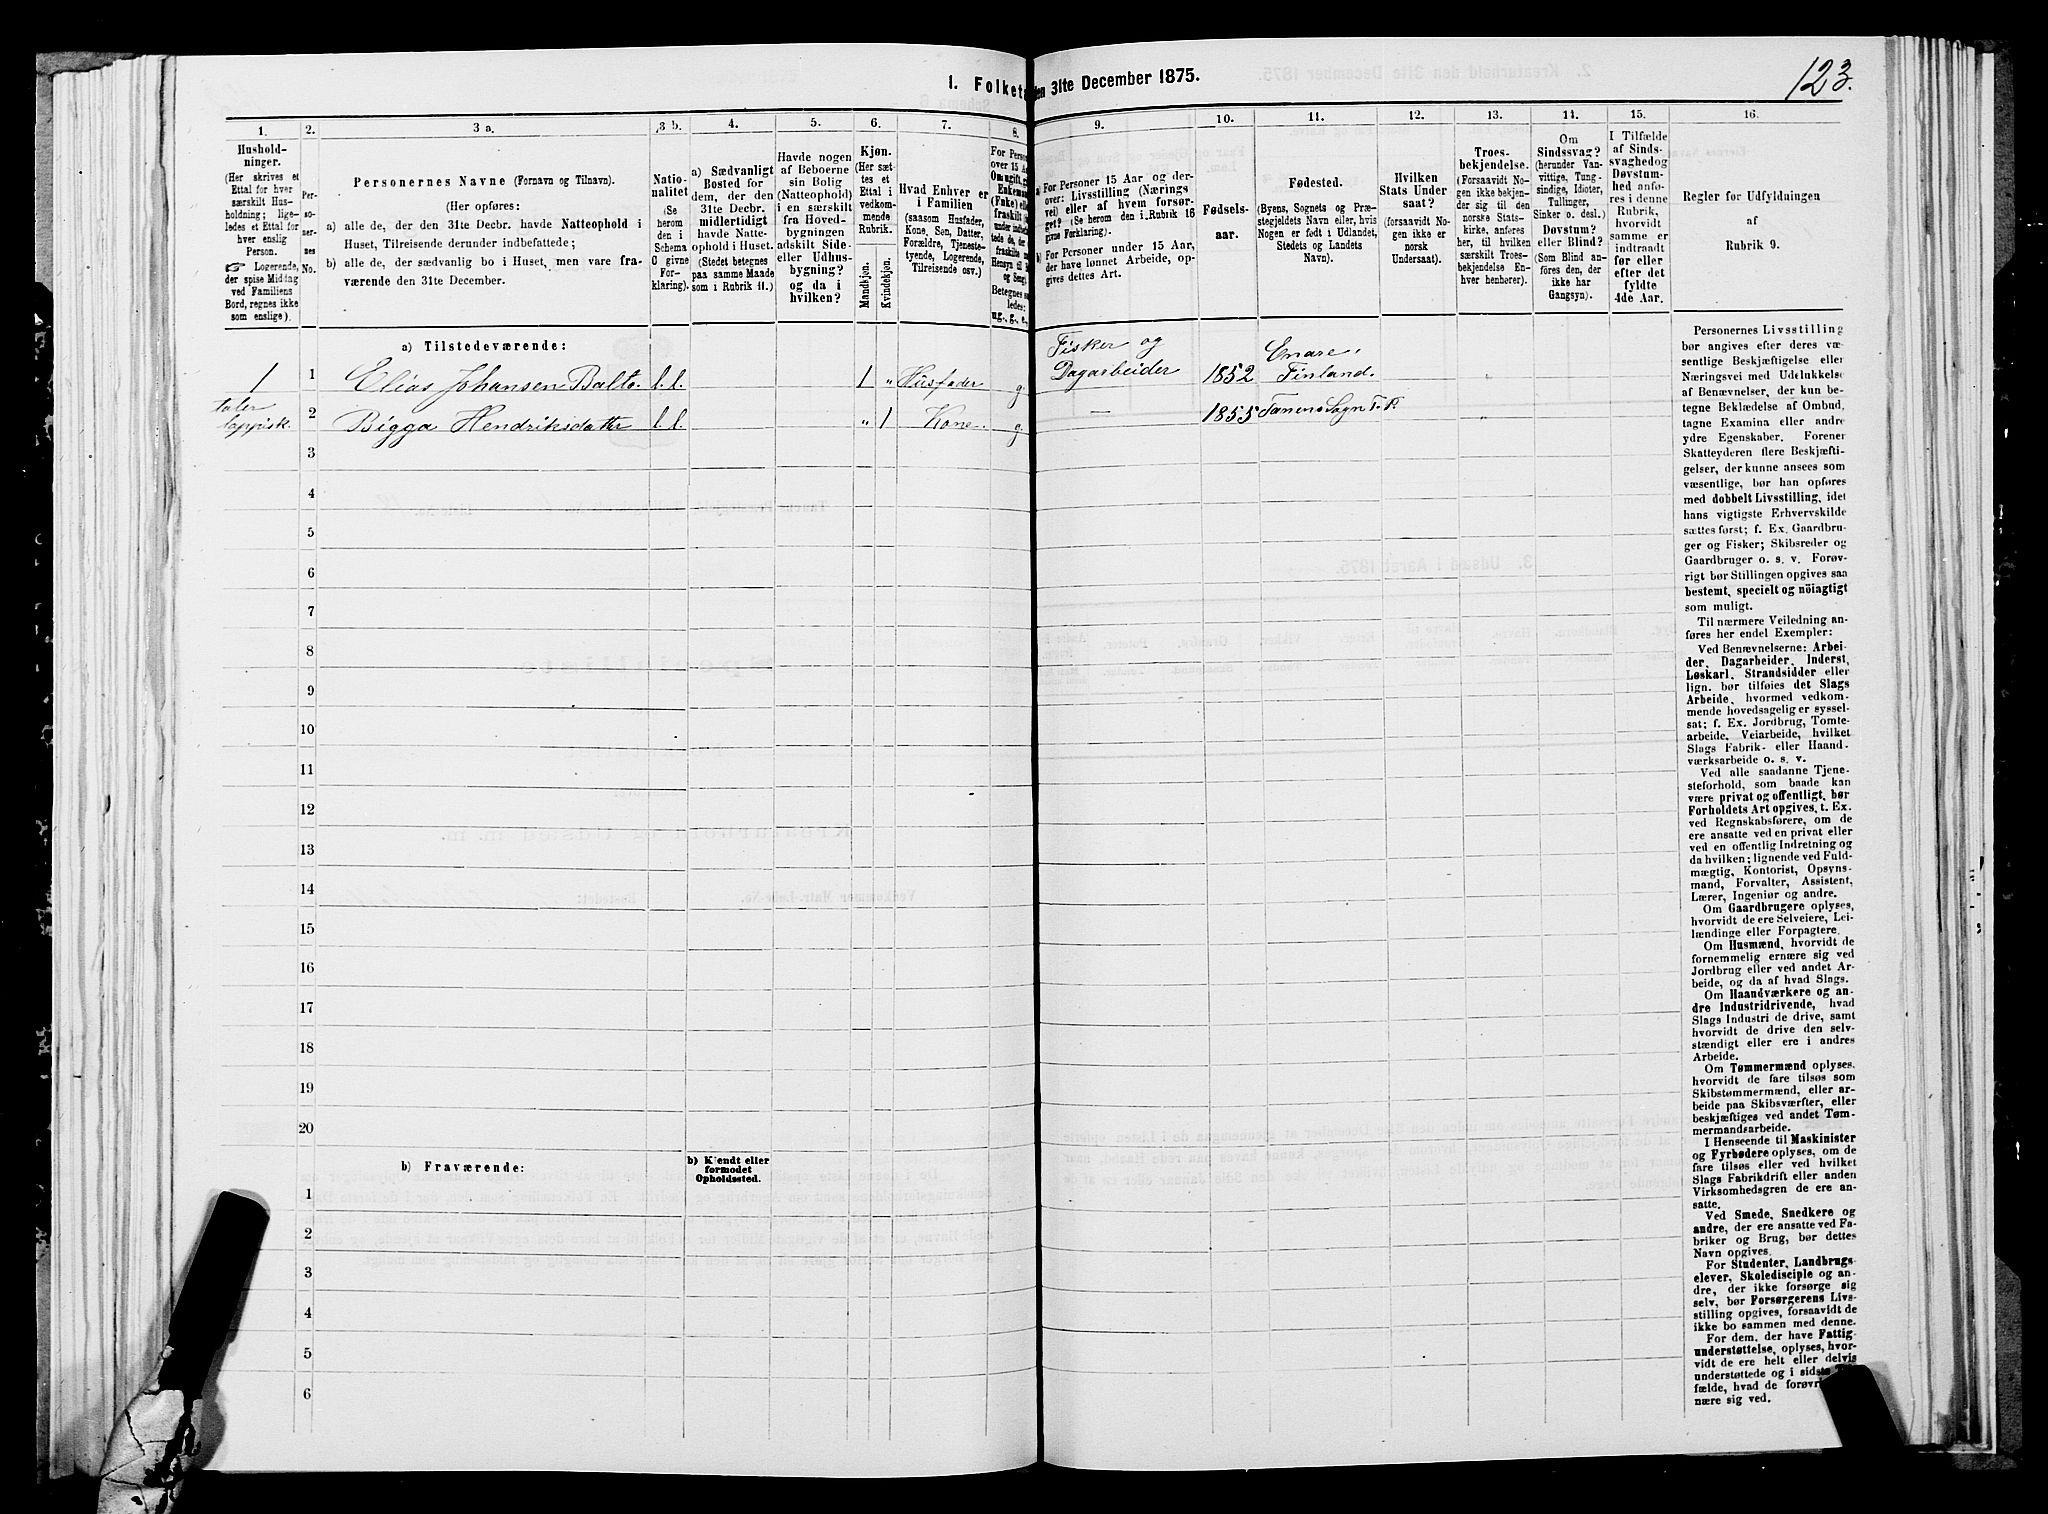 I. Folketæ
den 31te December 1875.
123.
1.
2.
3 a.
3 b.
4.
5.
6.
7.
8.
9.
10.
11.
12.
13.
14.
15.
16.
Hushold-
ninger.
(Her skrives et
Ettal for hver
særskilt Hus-
holdning; lige-
ledes et Ettal for
hver enslig
Person.
☞ Logerende,
der spise Middag
ved Familiens
Bord, regnes ikke
som enslige).
Per-
so-
ner-
nes
No.
Personernes Navne (Fornavn og Tilnavn).
(Her opføres:
a) alle de, der den 31te Decbr. havde Natteophold i
Huset, Tilreisende derunder indbefattede;
b) alle de, der sædvanlig bo i Huset, men vare fra-
værende den 31te December.
Natio-
nalitet
(Se
herom
den i
Schema
C givne
For-
klaring).
a) Sædvanligt
Bosted for
dem, der den
31te Decbr.
midlertidigt
havde Natte-
ophold i Huset.
(Stedet betegnes
paa samme Maade
som i Rubrik 11.)
Havde nogen
af Beboerne
sin Bolig
(Natteophold)
i en særskilt
fra Hoved-
bygningen
adskilt Side-
eller Udhus-
bygning?
og da i
hvilken?
Kjøn.
(Her sæt-
tes et
Ettal i
vedkom-
mende
Rubrik.
Mandkjøn.
Kvindekjøn.
Hvad Enhver er
i Familien
(saasom Husfader,
Kone, Søn, Datter,
Forældre, Tjeneste-
tyende, Logerende,
Tilreisende osv.)
For Person
over 15 A
Om ugift, g
Enkema
(Fnke) el
fraskilt
under indb
tede de,
fraskilte
Hensyn til
og Seng)
Betegnes s
ledes:
ug., g., e.,
a) For Personer 15 Aar og der-
over: Livsstilling (Nærings
vei) eller af hvem forsør-
get? (Se herom den i Rubrik 16
givne Forklaring).
b) For Personer under 15 Aar,
der have lønnet Arbeide, op-
gives dettes Art.
Fødsels-
aar.
Fødested.
(Byens, Sognets og Præ-
stegjeldets Navn eller, hvis
Nogen er født i Udlandet,
Stedets og Landets
Navn).
Hvilken
Stats Under
saat?
(forsaavidt No-
gen ikke er
norsk
Undersaat).
Troes-
bekjendelse.
(Forsaavidt No-
gen ikke bekjen-
der sig til den
norske Stats-
kirke, anføres
her, til hvilken
særskilt Troes-
bekjendelse En-
hver henhører).
Om
Sindssvag?
(herunder Van-
vittige, Tung-
sindige, Idioter,
Tullinger,
Sinker o. desl.)
Døvstum?
eller Blind?
(Som Blind an-
føres den, der
ikke har
Gangsyn).
I Tilfælde
af Sinds-
svaghed og
Døvstum-
hed anfø-
res i denne
Rubrik,
hvorvidt
samme er
indtraadt
før eller
efter det
fyldte
4de Aar.
Regler for Udfyldningen
af
Rubrik 9.
a) Tilstedeværende:
1
1
Elias Johansen Balto.
l. l.
1
"
Husfader
g.
Fisker og
Dagarbeider
1852
Enare.
Finland.
taler
lappisk.
2
Bigga Hendriksdatter
l. l.
"
1
Kone.
g.
1855
Tanens Sogn T. P.
3
4
5
6
7
8
9
10
11
12
13
14
15
16
17
18
19
20
b) Fraværende:
b) Kjendt eller
formodet
Opholdssted.
1
2
3
4
5
6
Personernes Livsstilling
bør angives efter deres væ-
sentlige Beskjæftigelse eller
Næringsvei med Udelukkelse
af Benævnelser, der kun be-
tegne Beklædelse af Ombud,
tagne Examina eller andre
ydre Egenskaber. Forener
Skatteyderen flere Beskjæfti-
gelser, der kunne ansees som
væsentlige, bør han opføres
med dobbelt Livsstilling, idet
hans vigtigste Erhvervskilde
sættes først; f. Ex. Gaardbru-
ger og Fisker; Skibsreder og
Gaardbruger o. s. v. Forøv-
rigt bør Stillingen opgives saa
bestemt, specielt og nöiagtigt
som muligt.
Til nærmere Veiledning an-
føres her endel Exempler:
Ved Benævnelserne: Arbei-
der, Dagarbeider, Inderst,
Løskarl, Strandsidder eller
lign. bør tilføies det Slags
Arbeide, hvormed vedkom-
mende hovedsagelig er syssel-
sat; f. Ex. Jordbrug, Tomte-
arbeide, Veiarbeide, hvilket
Slags Fabrik- eller Haand-
værksarbeide o. s. v.
Ved alle saadanne Tjene-
steforhold, som baade kan
være privat og offentligt, bør
Forholdets Art opgives, t. Ex.
ved Regnskabsførere, om de
ere ansatte ved en privat eller
ved en offentlig Indretning og
da hvilken; lignende ved Fuld-
mægtig, Kontorist, Opsyns-
mand, Forvalter, Assistent,
Lærer, Ingeniør og andre.
Om Gaardbrugere oplyses,
hvorvidt de ere Selveiere, Lei-
lændinge eller Forpagtere.
Om Husmænd, hvorvidt de
fornemmelig ernære sig ved
Jordbrug eller ved andet Ar-
beide, og da af hvad Slags.
Om Haandværkere og an-
dre Industridrivende, hvad
Slags Industri de drive, samt
hvorvidt de drive den selv-
stændigt eller ere i andres
Arbeide.
Om Tømmermænd oplyses,
hvorvidt de fare tilsøs som
Skibstømmermænd, eller ar-
beide paa Skibsværfter, eller
beskjæftiges ved andet Tøm-
mermandsarbeide.
I Henseende til Maskinister
og Fyrbødere oplyses, om de
fare tilsøs eller ved hvilket
Slags Fabrikdrift eller anden
Virksomhedsgren de ere an-
satte.
Ved Smede, Snedkere og
andre, der ere ansatte ved Fa-
briker og Brug, bør dettes
Navn opgives.
For Studenter, Landbrugs-
elever, Skoledisciple og an-
dre, der ikke forsørge sig
selv, bør Forsørgerens Livs-
stilling opgives, forsaavidt de
ikke bo sammen med denne.
For dem, der have Fattig-
understøttelse, oplyses, hvor-
vidt de ere helt eller delvis
understøttede og i sidste
fælde, hvad de forøvr
nære sig ved.